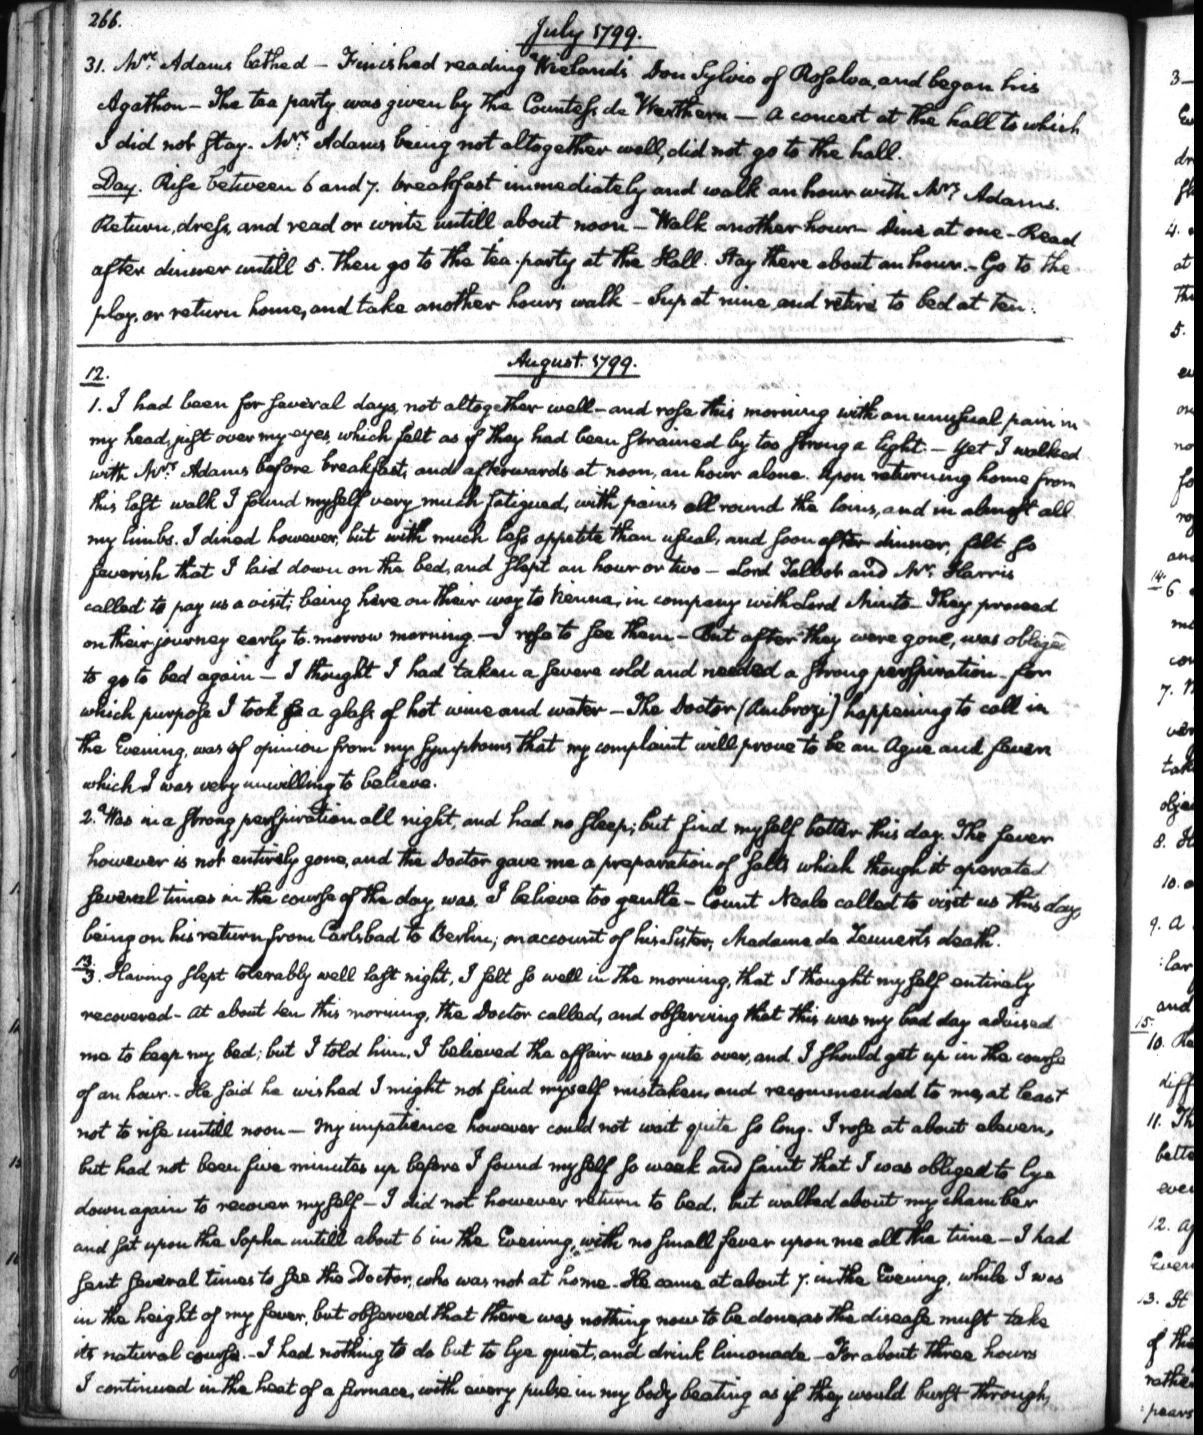 266.
July 1799.
31. Mrs. Adams bathed — Finished reading Wieland's Don Sylvio of Rosalva, and began his
Agathon — The tea party was given by the Countess de Werthern — a concert at the hall to which
I did not stay. Mrs. Adams being not altogether well, did not go to the hall.
Day. Rise between 6 and 7. breakfast immediately and walk an hour with Mrs. Adams.
Return, dress, and read or write untill about noon — Walk another hour — Dine at one — Read
after dinner untill 5. Then go to the tea-party at the Hall. Stay there about an hour. — Go to the
play, or return home, and take another hours walk — Sup at nine, and retire to bed at ten.
August. 1799.
12.
1. I had been for several days, not altogether well — and rose this morning with an unusual pain in
my head, just over my eyes, which felt as if they had been strained by too strong a light. — Yet I walked
with Mrs. Adams before breakfast, and afterwards at noon, an hour alone. Upon returning home from
this last walk I found myself very much fatigued, with pains all round the loins, and in almost all
my limbs. I dined however, but with much less appetite than usual, and soon after dinner, felt so
feverish that I laid down on the bed, and slept an hour or two — Lord Talbot and Mr. Harris
called to pay us a visit; being here on their way to Vienna, in company with Lord Minto — They proceed
on their journey early to-morrow morning. — I rose to see them — But after they were gone, was obliged
to go to bed again — I thought I had taken a severe cold and needed a strong perspiration — for
which purpose I took a glass of hot wine and water — The Doctor (Ambrozi) happening to call in
the Evening, was of opinion from my symptoms that my complaint will prove to be an Ague and fever
which I was very unwilling to believe.
2. Was in a strong perspiration all night, and had no sleep; but find myself better this day. The fever
however is not entirely gone, and the Doctor gave me a preparation of salts which though it operated
several times in the course of the day was, I believe too gentle — Count Neale called to visit us this day
being on his return from Carlsbad to Berlin; on account of his Sister, Madame de Zeunert's death.
13.
3. Having slept tolerably well last night, I felt so well in the morning, that I thought myself entirely
recovered — At about ten this morning, the Doctor called, and observing that this was my bad day advised
me to keep my bed; but I told him, I believed the affair was quite over, and I should get up in the course
of an hour. — He said he wished I might not find myself mistaken, and recommended to me, at least
not to rise untill noon — My impatience however could not wait quite so long. I rose at about eleven,
but had not been five minutes up before I found myself so weak and faint that I was obliged to lye
down again to recover myself — I did not however return to bed, but walked about my chamber
and sat upon the Sopha untill about 6 in the Evening, with no small fever upon me all the time — I had
sent several times to see the Doctor, who was not at home. He came at about 7. in the Evening, while I was
in the height of my fever, but observed that there was nothing now to be done, as the disease must take
its natural course. — I had nothing to do but to lye quiet, and drink limonade — For about three hours
I continued in the heat of a furnace, with every pulse in my body beating as if they would burst through,